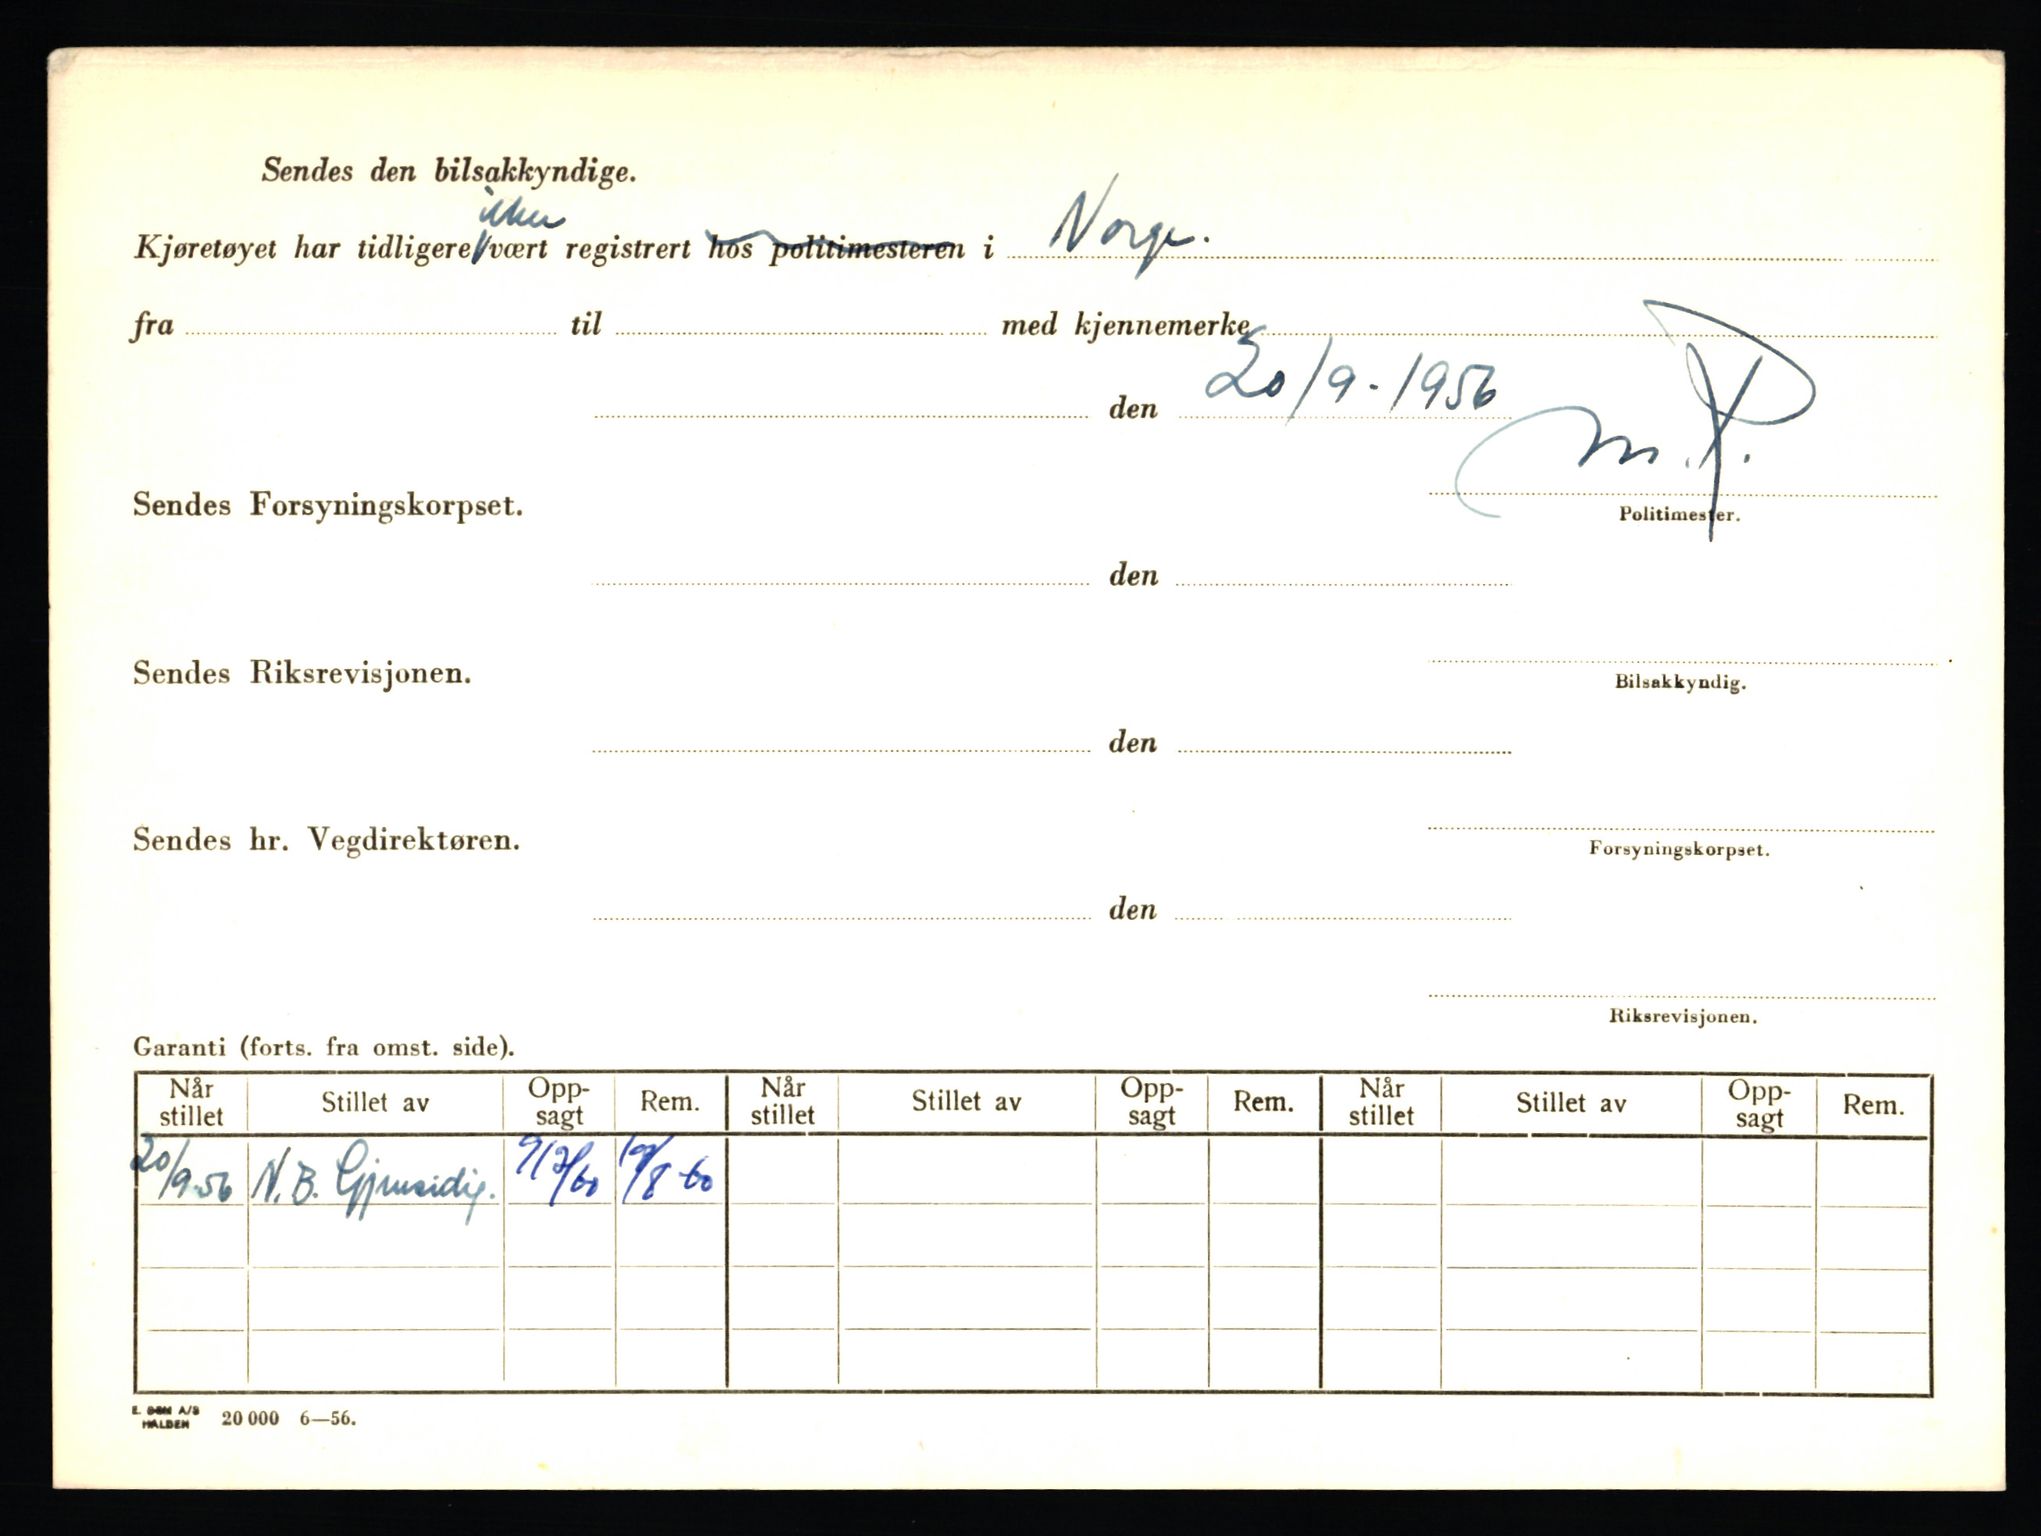 Sendes den bilsakkyndige.
ikke
Kjøretøyet har tidligere vært registrert hos politimesteren i Norge.
fra til med kjennemerke
den 20/9-1956
M.P.
Sendes Forsyningskorpset.
Politimester.
den
Sendes Riksrevisjonen.
Bilsakkyndig.
den
Sendes hr. Vegdirektøren.
Forsyningskorpset.
den
Riksrevisjonen.
Garanti (forts. fra omst. side).
Når stillet Stillet av Opp-sagt Rem. Når stillet Stillet av Opp-sagt Rem. Når stillet Stillet av Opp-sagt Rem.
20/9-56 N.B. Gjensidig. 9/7/60 19/8-60
HALDEN 20 000 6—56.